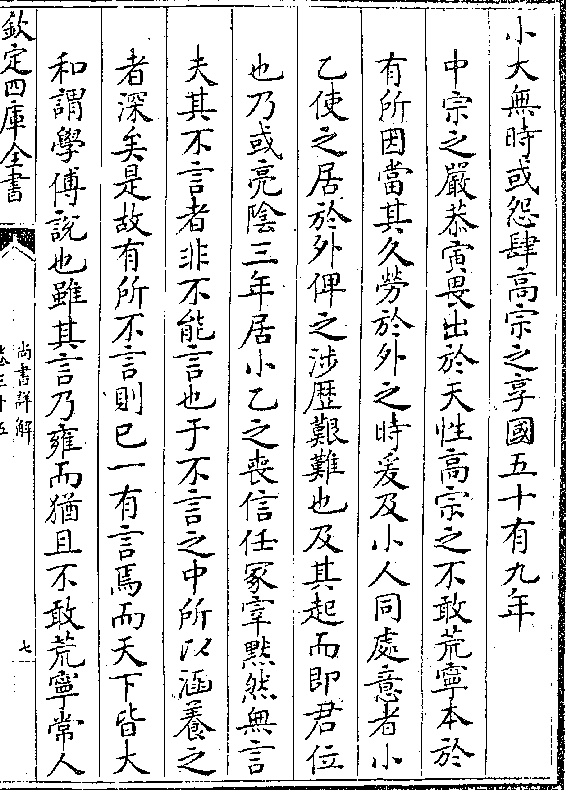 小大無時或怨肆高宗之享國五十有九年
中宗之嚴恭寅畏出於天性高宗之不敢荒寧本於
有所因當其久勞於外之時爰及小人同處意者小
乙使之居於外俾之涉歴艱難也及其起而即君位
也乃或亮陰三年居小乙之喪信任冢宰黙然無言
夫其不言者非不能言也于不言之中所以涵養之
者深矣是故有所不言則已一有言焉而天下皆大
和謂學傅說也雖其言乃雍而猶且不敢荒寧常人
欽定四庫全書
尚書詳解
卷三十五
七